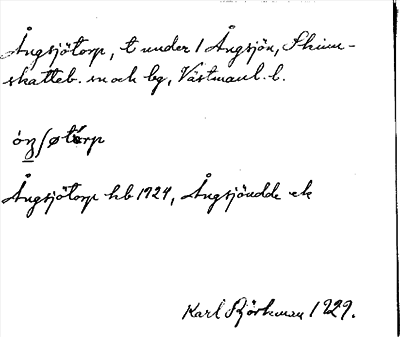 Ångsjötorp, t under 1 Ångsjön, Skinn-
skatteb. sn och bg, Västmanl. l.
Ångsjötorp hb 1924, Ångsjöudde ek
Karl Björkman 1929.